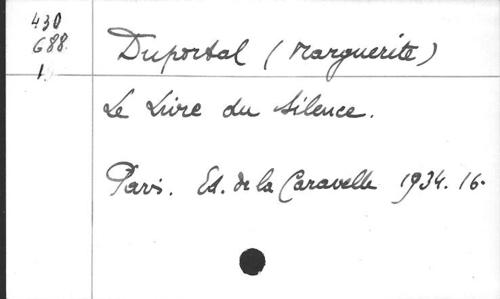 430
688.
1
Duportal (Marguerite)
Le Livre du silence.
Paris. Ed. de la Caravelle 1934. 16.